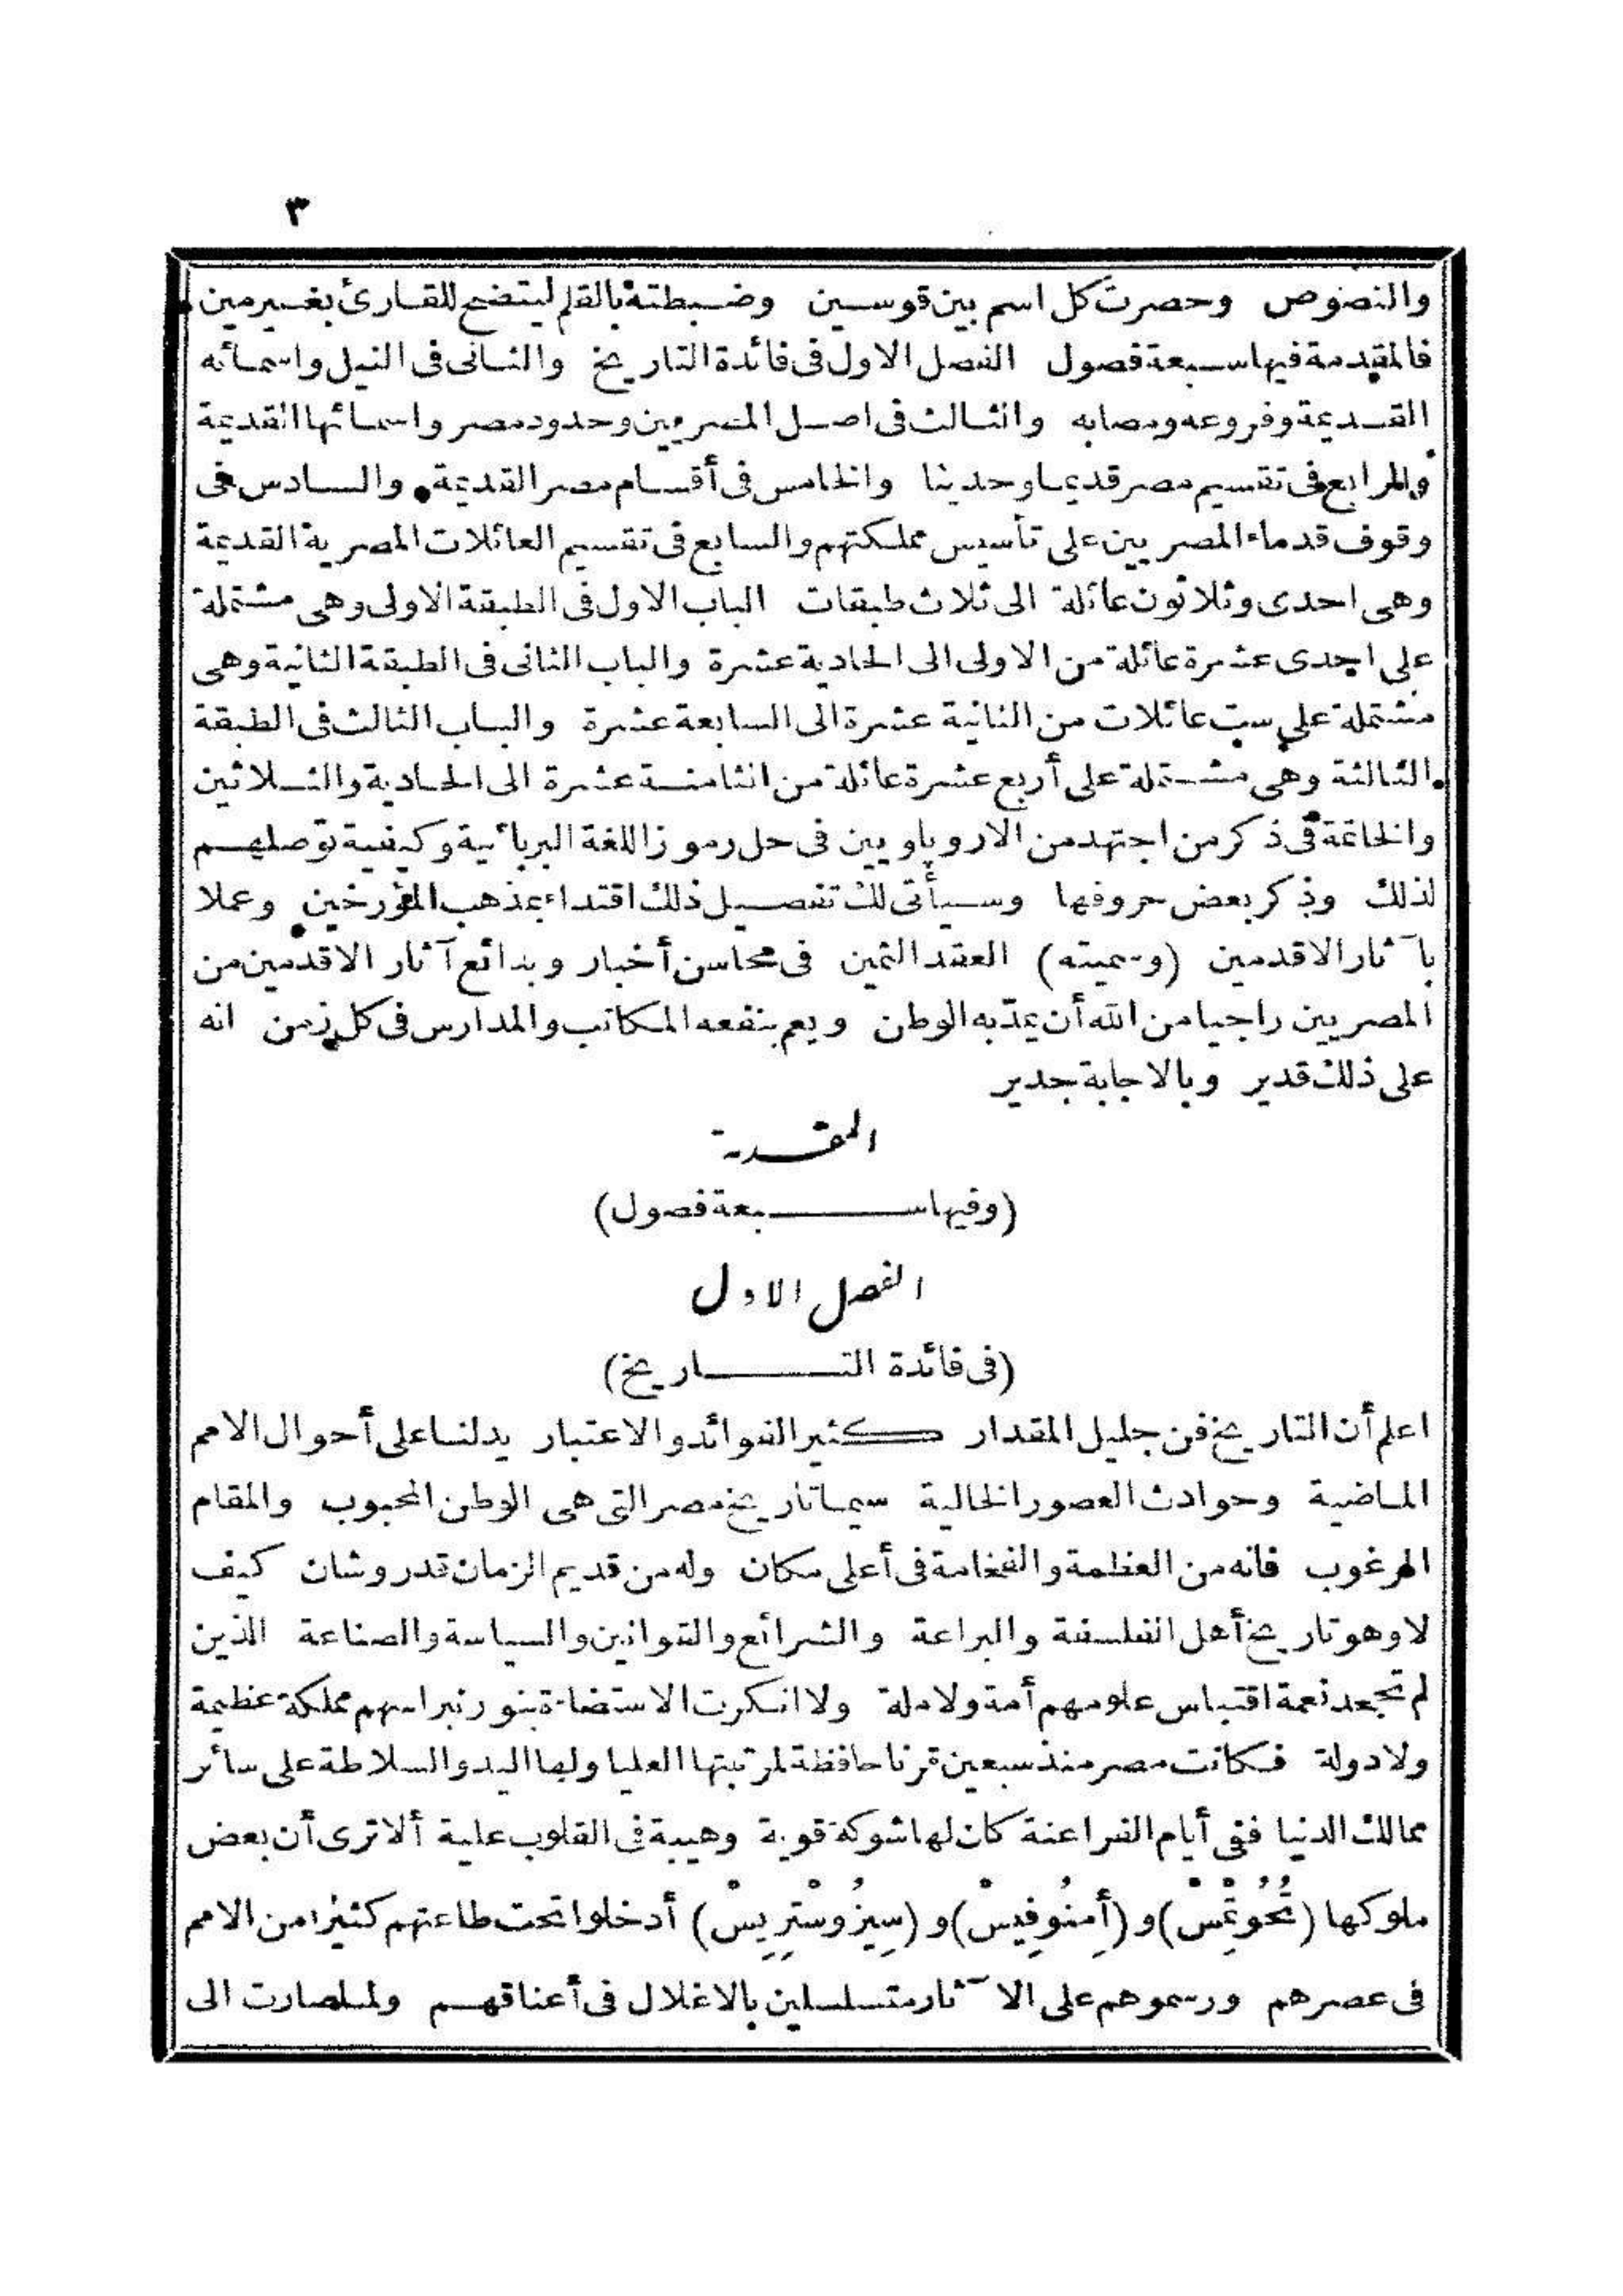 ٣
والنصوص وحصرت كل اسم بين قوسين وضبطته بالقلم ليتضح للقارئ بغير مين
فالمقدمة فيها سبعة فصول الفصل الاول فى فائدة التاريخ والثانى فى النيل واسمائه
القديمة وفروعه ومصابه والثالث فى اصل المصريين وحدود مصر واسمائها القديمة
والرابع فى تقسيم مصر قديما وحديثا والخامس فى أقسام مصر القديمة والسادس فى
وقوف قدماء المصريين على تأسيس مملكتهم والسابع فى تقسيم العائلات المصرية القديمة
وهى احدى وثلاثون عائلة الى ثلاث طبقات الباب الاول فى الطبقة الاولى وهى مشتملة
على احدى عشرة عائلة من الاولى الى الحادية عشرة والباب الثانى فى الطبقة الثانية وهى
مشتملة على ست عائلات من الثانية عشرة الى السابعة عشرة والباب الثالث فى الطبقة
الثالثة وهى مشتملة على أربع عشرة عائلة من الثامنة عشرة الى الحادية والثلاثين
والخاتمة فى ذكر من اجتهد من الاروپاويين فى حل رموز اللغة البربائية وكيفية توصلهم
لذلك وذكر بعض حروفها وسيأتى لك تفصيل ذلك اقتداء بمذهب المؤرخين وعملا
بآثار الاقدمين (وسميته) العقد الثمين فى محاسن أخبار وبدائع آثار الاقدمين من
المصريين راجيا من الله أن يمدّ به الوطن ويعم بنفعه المكاتب والمدارس فى كل زمن انه
على ذلك قدير وبالاجابة جدير
المقدمة
(وفيها سبعة فصول)
الفصل الاول
(فى فائدة التاريخ)
اعلم أن التاريخ فن جليل المقدار كثير الفوائد والاعتبار يدلنا على أحوال الامم
الماضية وحوادث العصور الخالية سيما تاريخ مصر التى هى الوطن المحبوب والمقام
المرغوب فانه من العظمة والفخامة فى أعلى مكان وله من قديم الزمان قدر وشان كيف
لا وهو تاريخ أهل الفلسفة والبراعة والشرائع والقوانين والسياسة والصناعة الذين
لم تجحد نعمة اقتباس علومهم أمة ولا ملة ولا انكرت الاستضاءة بنور نبراسهم مملكة عظيمة
ولا دولة فكانت مصر منذ سبعين قرنا حافظة لمرتبتها العليا ولها اليد والسلاطة على سائر
ممالك الدنيا ففى أيام الفراعنة كان لها شوكة قوية وهيبة فى القلوب علية ألا ترى أن بعض
ملوكها (تُحُوتْمِسْ) و (أَمِنُوفِيسْ) و (سِيزُوسْتْرِيسْ) أدخلوا تحت طاعتهم كثيرا من الامم
فى عصرهم ورسموهم على الآثار متسلسلين بالاغلال فى أعناقهم ولما صارت الى